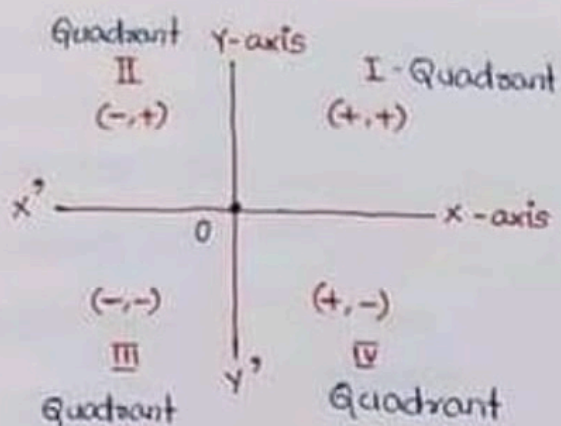 Quadrant Y-axis
II I - Quadrant
(-,+) (+,+)
X' X -axis
O
(-,-) (+,-)
III IV
Y'
Quadrant Quadrant